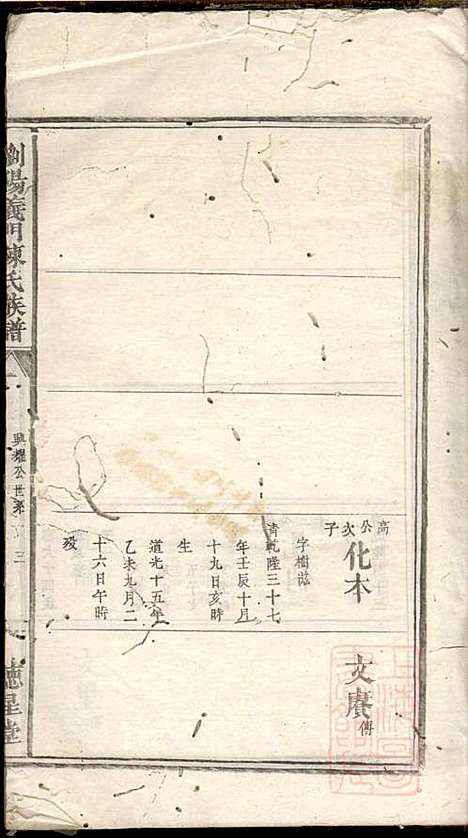 高公次子
化本
字樹滋
清乾隆三十七
年壬辰十月
十九日亥時
生
道光十五年
乙未九月二
十六日午時
歿
文賡傳
瀏陽義門陳氏族譜
興耀公世系
三
德星堂